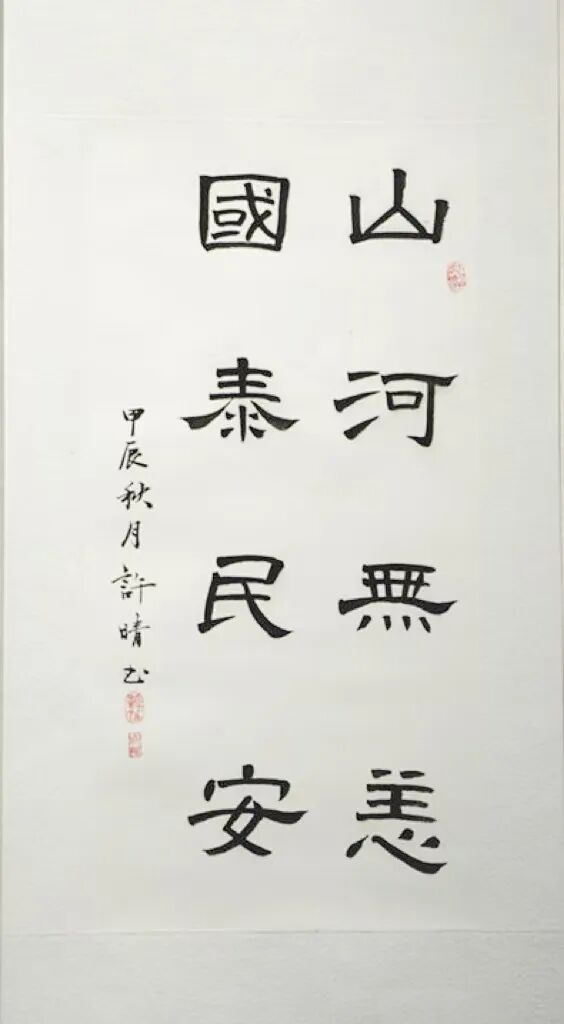 山河無恙
國泰民安
甲辰秋月許晴书